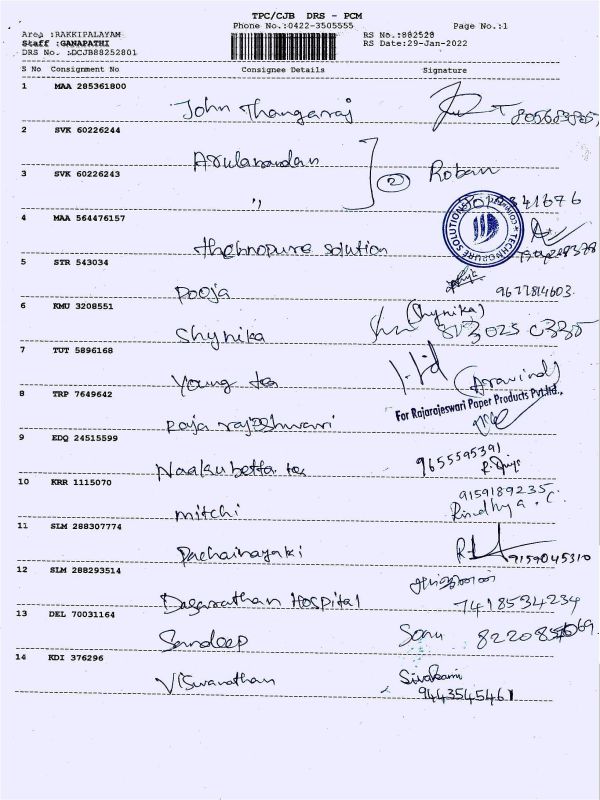 TPC/CJB DRS - PCM
Phone No.:0422-3505555 Page No.:1
Area :RAKKIPALAYAM RS No.:882528
Staff :GANAPATHI RS Date:29-Jan-2022
DRS No. :DCJB88252801
S No Consignment No Consignee Details Signature
1 MAA 285361800
John Thangarraj
2 SVK 60226244
Arulanandan
3 SVK 60226243 2 Roban
,,
4 MAA 564476157
thechnopure solution TECHNOPURE SOLUTIONS
5 STR 543034
Pooja 9677814603
6 KMU 3208551 (Shynika)
Shynika
7 TUT 5896168
Young tea (Aravind)
8 TRP 7649642 For Rajarajeswari Paper Products Pvt.ltd.,
Raja rajeshwari
9 EDQ 24515599
Naakubetta tea 9655595391
10 KRR 1115070 9159189235
mitchi Rindhya . C.
11 SLM 288307774
Pachainayaki 9159045310
12 SLM 288293514
Dasarathan Hospital 7418534234
13 DEL 70031164
Sandeep Sonu
14 KDI 376296
Viswanathan Sivakami
9443545461